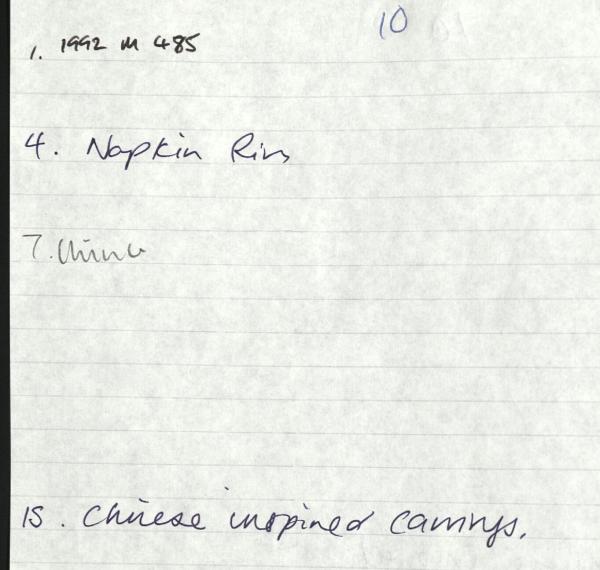 10
1. 1992 M 485
4. Napkin Ring
7. China
15. Chinese inspired carvings.